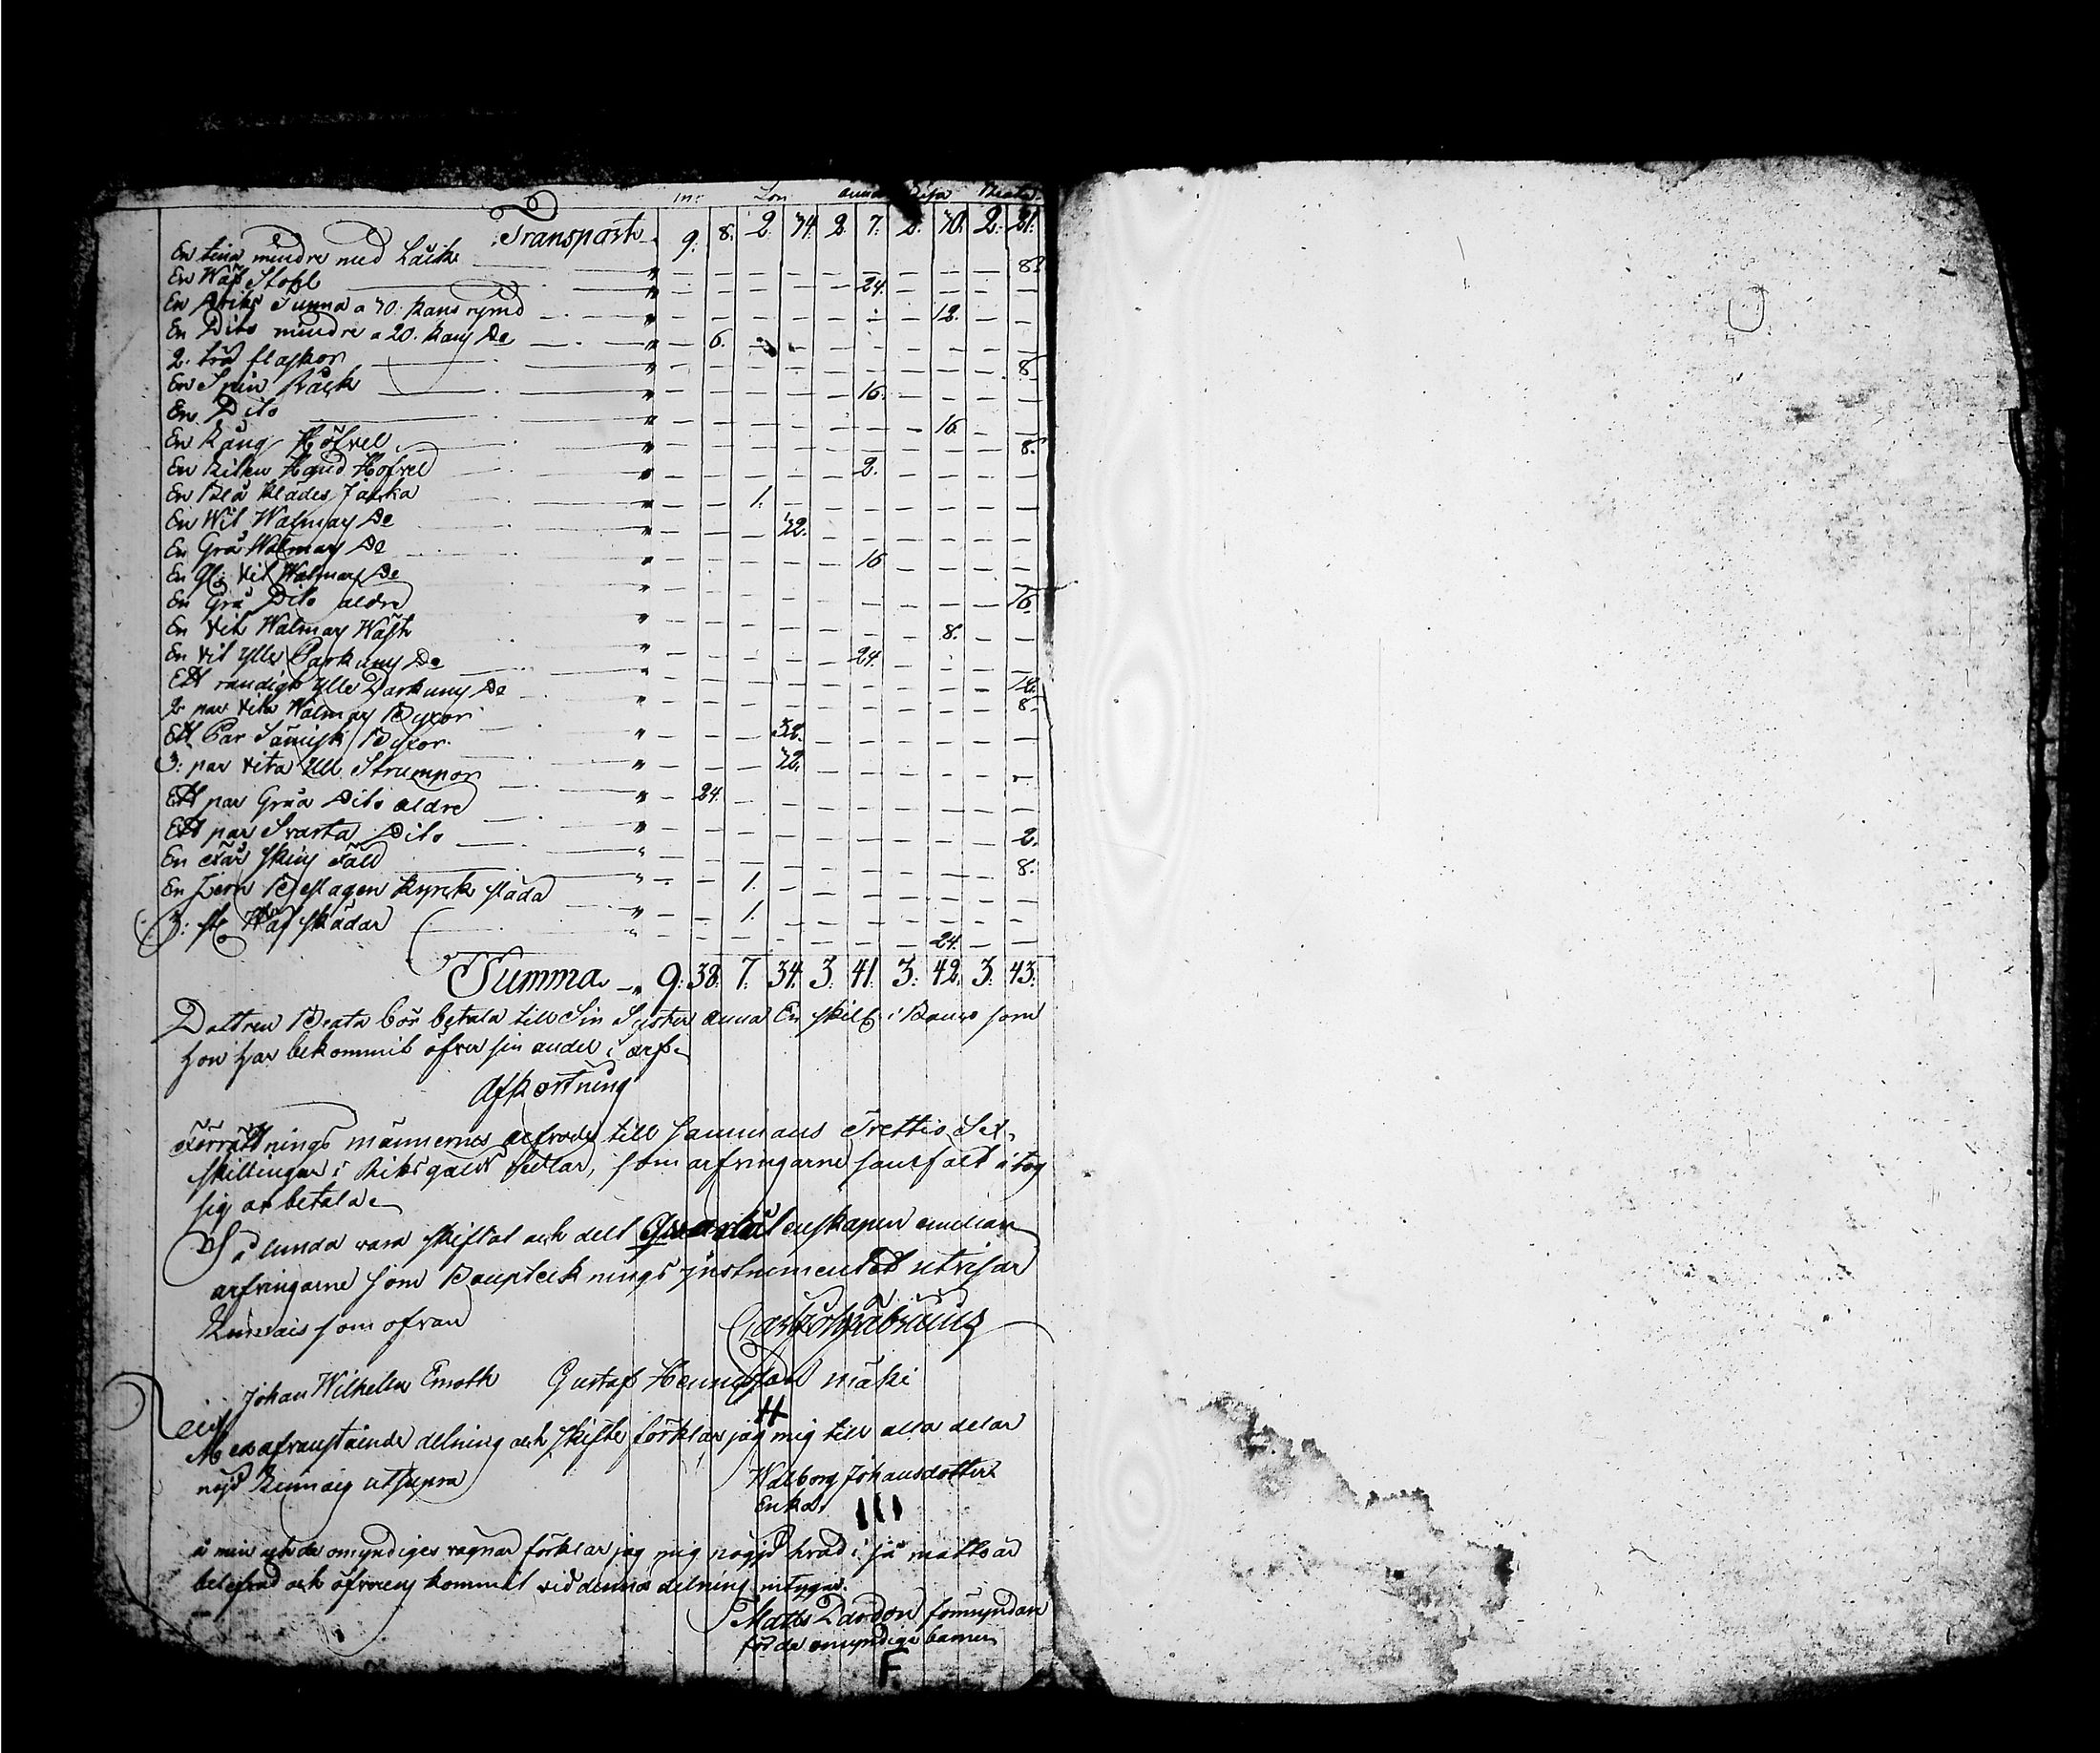 Transport 9. 8. 2. 34. 2. 7. 2. 30. 2. 21.
En tina mindre med Låck 8.
En Wäf Stohl 24.
En Dricks Tunna a 30. kans rymd 12.
En Dito mindre a 20. kans Do 6.
2. trä flaskor 8.
En Spin Råck 16.
En Dito 16.
En Lång Höfvel 8.
En liten Hand Höfvel 2.
En Blå klädes Jacka 1.
En Wit Walmars Do 32.
En Grå Walmars Do 16
En Gl: vit Walmars Do
En Grå Dito äldre 16.
En Vit Walmars Wäst 8.
En vit ylle Parkums Do 24.
Ett randigt ylle Parkums Do 12.
2 par vita Walmars Byxor 8.
Ett Par Sämisk Byxor 32.
3: par vita Ull Strumpor 32.
Ett par Gråa Dito äldre 24.
Ett par Svarta Dito 2.
En Får skins Fäll 8.
En Jern Beslagen kyrck släda 1. 1.
3: st. Wäf skädar 24.
Summa 9. 38. 7. 34. 3. 41. 3. 42. 3. 43.
Dottren Beata bör betala till Sin Syster Anna En skill. i Banco som
hon har bekommit öfver sin andel i arf.
Afkortning
Förrättnings männernes arfvode till sammans Trettio Sex
skillingar i Riks gälds Sedlar, som arfvingarne samfält åtog
sig at betala.
Så lunda vara skiftat och delt Qvarlåtenskapen emellan
arfvingarne som Bouptecknings instrumentet utvisar
som ofvan
Johan Wilhelm Emoth Gustaf Hennicson mäki
Med ofvanstående delning och skifte förklar jag mig till alla delar
nöjd ut supra
Walborg Johansdotter
Enka
III
å min och de omyndiges vägnar förklar jag mig nögd hvad i så måtto är
och öfverens kommit vid denna delning intygar.
Matts förmyndare
för de omyndige barnen
F